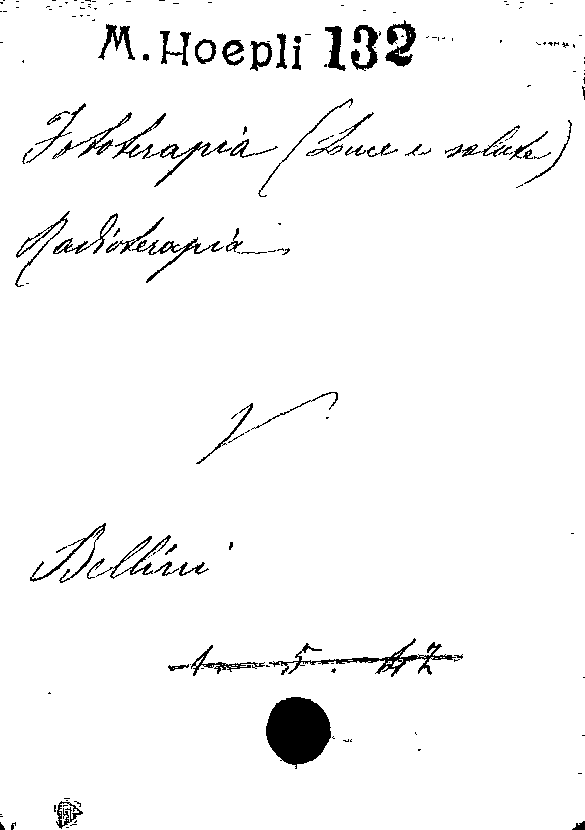 M. Hoepli 132
Fototerapia (Luce e salute)
Radioterapia
V
Bellini